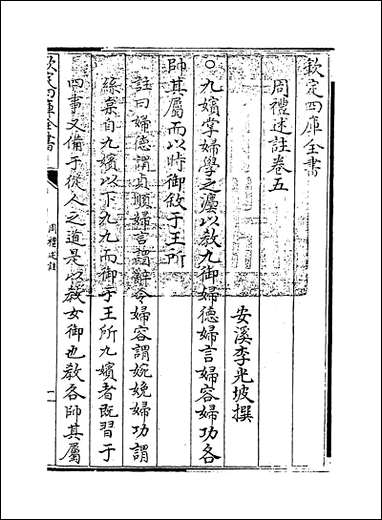 欽定四庫全書
周禮述註卷五
安溪李光坡撰
○九嬪掌婦學之灋以敎九御婦德婦言婦容婦功各
帥其屬而以時御敘于王所
註曰婦德謂貞順婦言謂辭令婦容謂婉娩婦功謂
絲枲自九嬪以下九九而御于王所九嬪者既習于
四事又備于從人之道是以教女御也教各帥其屬
欽定四庫全書
周禮述註
一